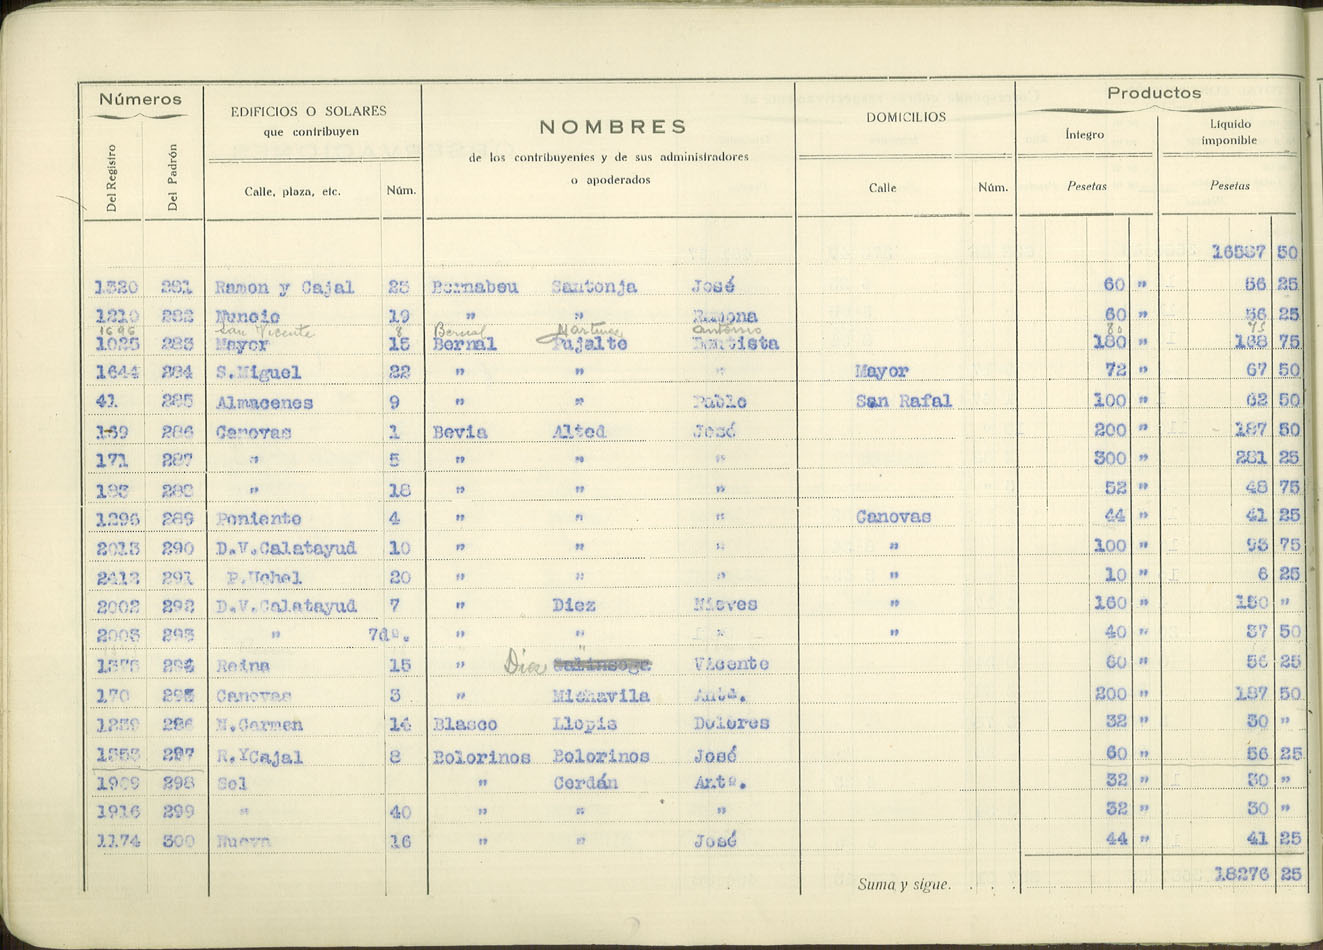 Números EDIFICIOS O SOLARES que contribuyen NOMBRES de los contribuyentes y de sus administradores o apoderados DOMICILIOS Productos
Del Registro Del Padrón Calle, plaza, etc. Núm. Calle Núm. Íntegro Pesetas Líquido imponible Pesetas
16587 50
1320 281 Ramon y Cajal 25 Bernabeu Santonja José 60 " 56 25
1210 282 Nuncio 19 " " Ramona 60 " 56 25
1696 San Vicente 8 Bernal Martinez Antonio 80 75
1025 283 Mayor 15 Bernal Pujalte Bautista 180 " 168 75
1644 284 S.Miguel 22 " " " Mayor 72 " 67 50
41 285 Almacenes 9 " " Pablo San Rafal 100 " 62 50
169 286 Canovas 1 Bevia Alted José 200 " 187 50
171 287 " 5 " " " 300 " 281 25
193 288 " 18 " " " 52 " 48 75
1296 289 Poniente 4 " " " Canovas 44 " 41 25
2013 290 D.V.Calatayud 10 " " " " 100 " 93 75
2412 291 P.Uchel 20 " " " " 10 " 6 25
2002 292 D.V.Calatayud 7 " Diez Nieves " 160 " 150 "
2003 293 " 7dº. " " " " 40 " 37 50
294 Reina 15 " Diez Vicente 60 " 56 25
170 295 Canovas 3 " Michavila Antº. 200 " 187 50
1239 296 N.Carmen 14 Blasco Llopis Dolores 32 " 30 "
1353 297 R.YCajal 8 Bolorinos Bolorinos José 60 " 56 25
1909 298 Sol " Cerdán Antº. 32 " 30 "
1916 299 " 40 " " " 32 " 30 "
1174 300 Nueva 16 " " José 44 " 41 25
Suma y sigue. . . . 18276 25